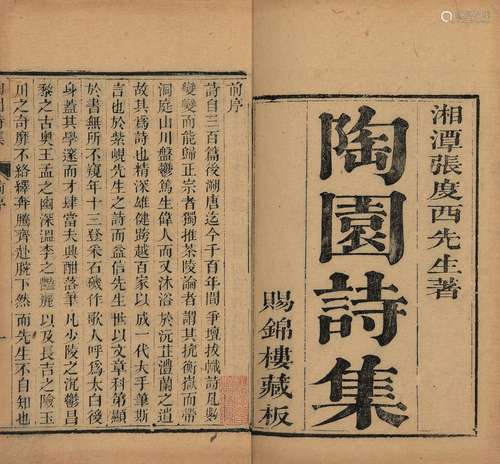 湘潭張度西先生著
陶園詩集
賜錦樓藏板
前序
詩自三百篇後溯唐迄今千百年間爭壇拔幟詩凡數
變變而能歸正宗者獨推茶陵論者謂其抗衡嶽而帶
洞庭山川盤鬱篤生偉人而又沐浴於沅芷澧蘭之遺
故其爲詩也精深雄健跨越百家以成一代大手筆斯
言也於紫峴先生之詩而益信先生世以文章科第顯
於書無所不窺年十三登采石磯作歌人呼爲太白後
身蓋其學邃而才肆當夫典酣落筆凡少陵之沉鬱昌
黎之古奥王孟之幽深溫李之豔 以及長吉之險玉
川之奇靡不絡繹奔騰齊赴腕下然而先生不自知也
陶園詩集
前序
一